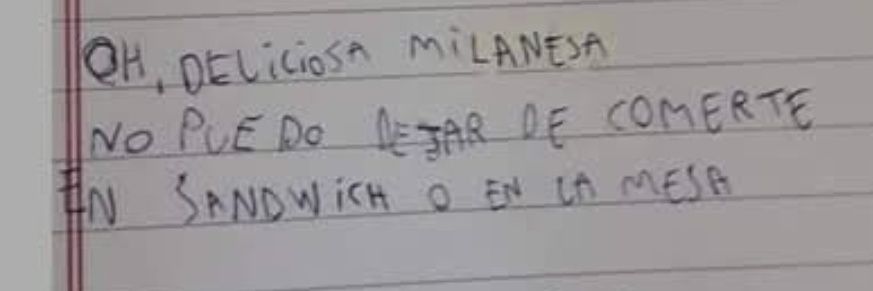 OH, DELiCiOSA MiLANESA
NO PUEDO DEJAR DE COMERTE
EN SANDWiCH O EN LA MESA